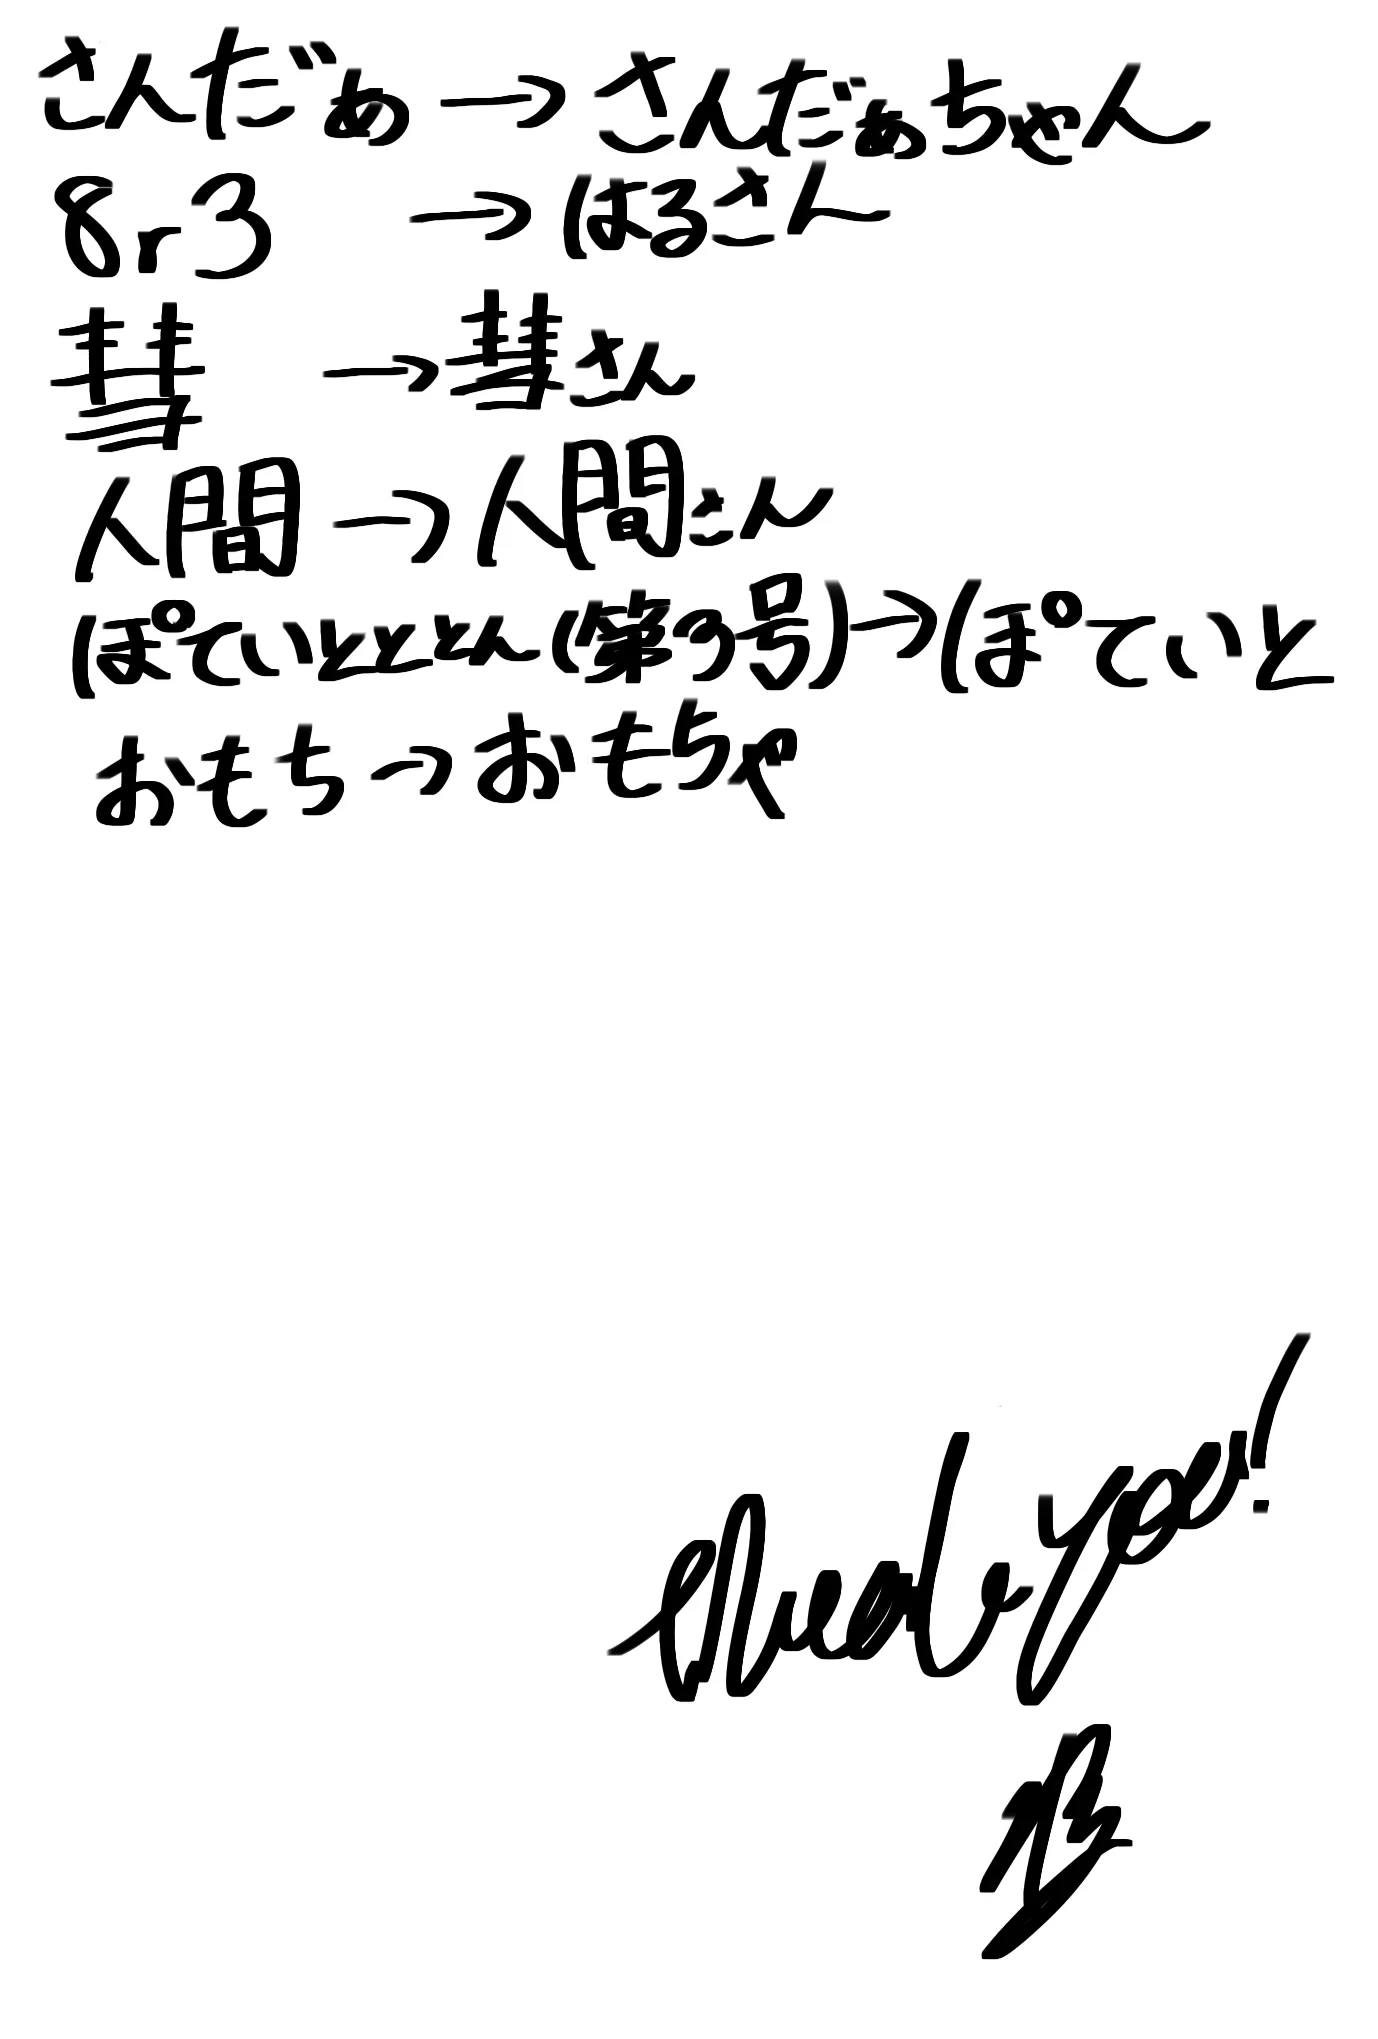 さんだぁ→さんだぁちゃん
8r3→はるさん
彗→彗さん
人間→人間さん
ぽてぃとととん(第3号)→ぽてぃと
おもち→おもちゃ
Thank you!